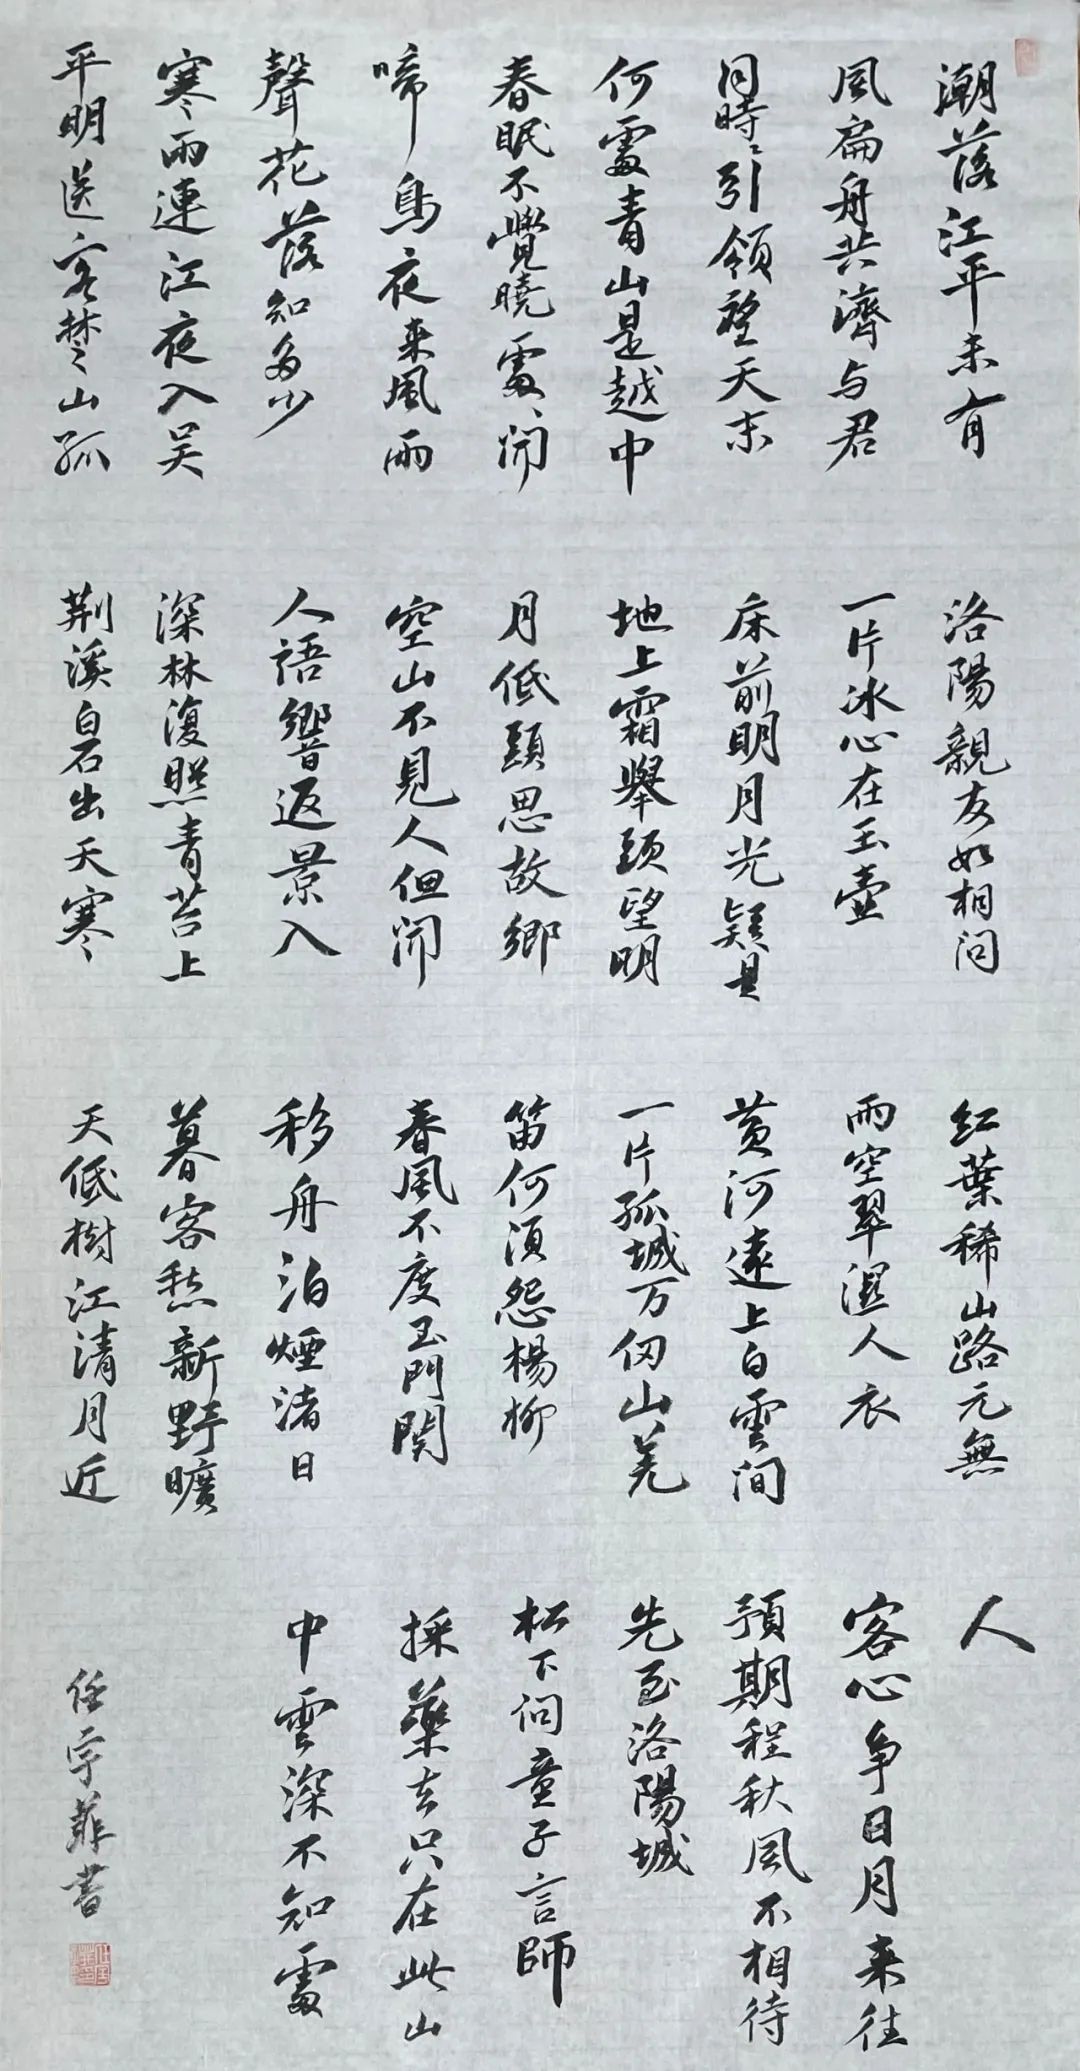 潮落江平未有
風扁舟共濟与君
同時時引領望天末
何處青山是越中
春眠不覺曉處處聞
啼鳥夜来風雨
聲花落知多少
寒雨連江夜入吴
平明送客楚山孤
洛陽親友如相问
一片冰心在玉壺
床前明月光疑是
地上霜舉頭望明
月低頭思故鄉
空山不見人但闻
人語響返景入
深林復照青苔上
荆溪白石出天寒
红葉稀山路元無
雨空翠濕人衣
黄河遠上白雲间
一片孤城万仞山羌
笛何須怨楊柳
春風不度玉門関
移舟泊煙渚日
暮客愁新野曠
天低樹江清月近
人
客心争日月来往
預期程秋風不相待
先至洛陽城
松下问童子言師
採藥去只在此山
中雲深不知處
任宇菲書